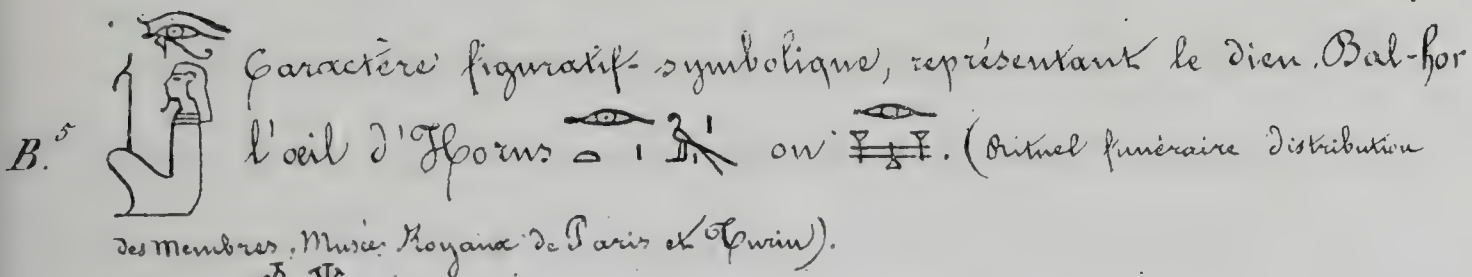 Caractère figuratif-symbolique, représentant le dieu Bal-hor
B.⁵ l'œil d'Horus ou . (Rituel funéraire distribution
des membres, Musées Royaux de Paris et Turin).